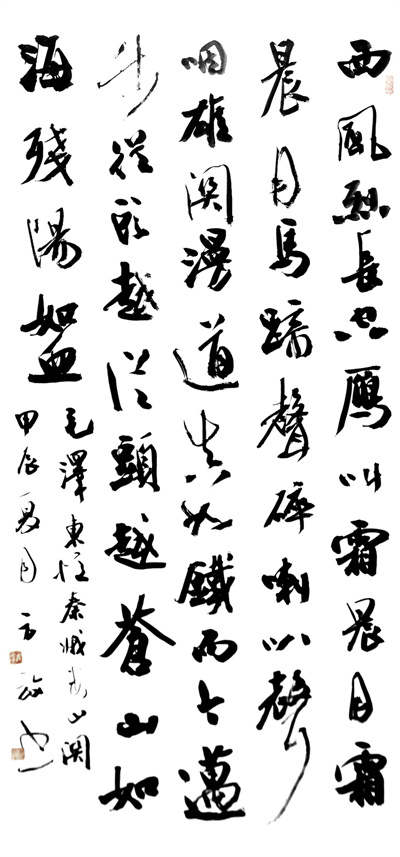 西風烈長空鴈叫霜晨月霜
晨月馬蹄聲碎喇叭聲
咽雄関漫道真如鐵而今邁
步從頭越從頭越蒼山如
海殘陽如血
毛澤東憶秦娥婁山関
甲辰夏月方